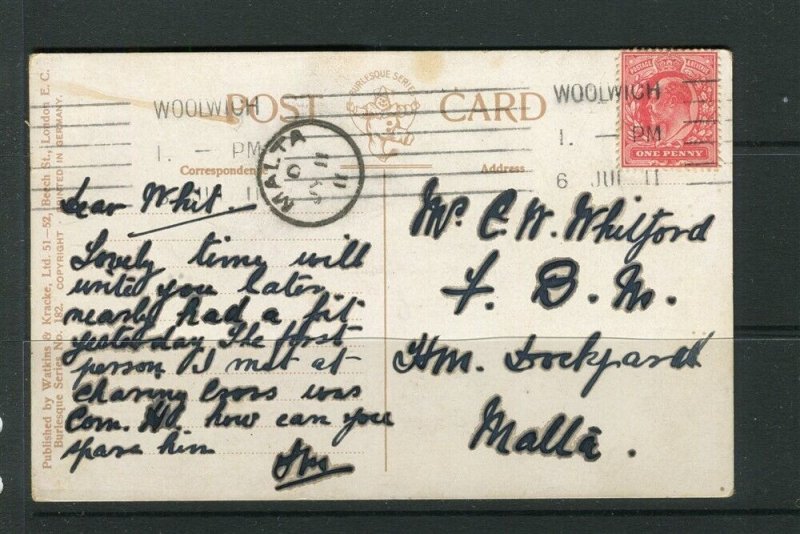 BURLESQUE SERIES
POST CARD
WOOLWICH
1. - PM
6 JUL 11
WOOLWICH
1. - PM
6 JUL 11
POSTAGE
ONE PENNY
MALTA
11
11
Correspondence
Address
Dear Whit.
Lovely time will
write you later
nearly had a fit
yesterday The first
person I met at
Charing Cross was
Com. how can you
spare him
Mr. C. W. Whitford
D. M.
HM. Dockyard
Malta.
Published by Watkins & Kracke, Ltd. 51-52, Beech St., London E. C.
Burlesque Series No. 182. COPYRIGHT PRINTED IN GERMANY.